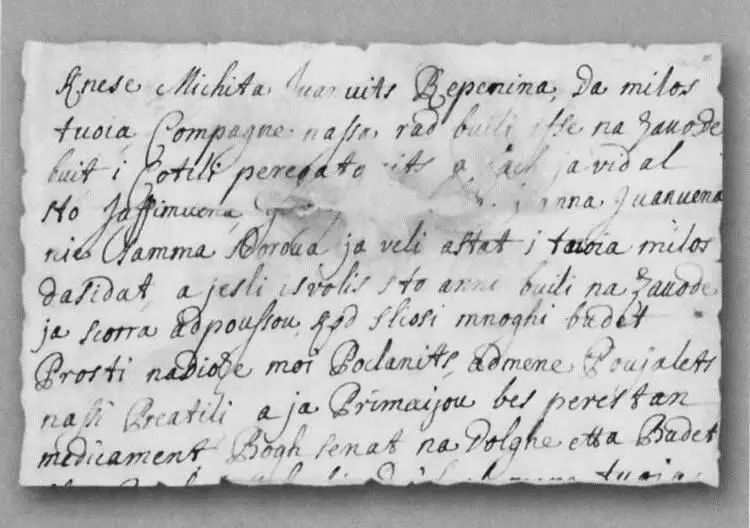 Knese Michita Juanvits Repenina, Da milos
tuoia Compagne nasso rad buili isse na zauode
buit i Cotili peregato a ja vidal
sto Jaffimuena, Juanuena
nie Samma ja veli astat i tuoia milos
dasidat, a jesli isvolis sto anni buili na zauode
ja scorra adpoussou, sliosi mnoghi budet
Prosti nadioze moi Poclanits, admene Poujalets
nassi Preatili a ja Primaijou bes perestan
medicament Bogh senat na Dolghe etta Budet